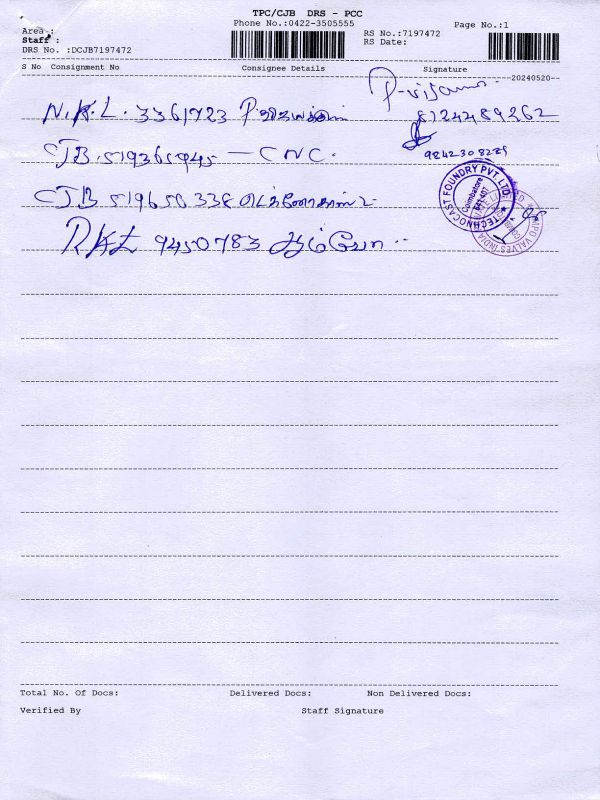 TPC/CJB DRS - PCC
Phone No.:0422-3505555
Page No.:1
Area :
Staff :
RS No.:7197472
RS Date:
DRS No. :DCJB7197472
S No Consignment No Consignee Details Signature
20240520
N.K.L. 3361723 P
8124489262
CJB 519365945 - CNC.
9842308229
CJB 519650338
TECHNOCAST FOUNDRY PVT. LTD.
Coimbatore
641 407
VALVES INDIA
RKL 9450783
Total No. Of Docs: Delivered Docs: Non Delivered Docs:
Verified By Staff Signature